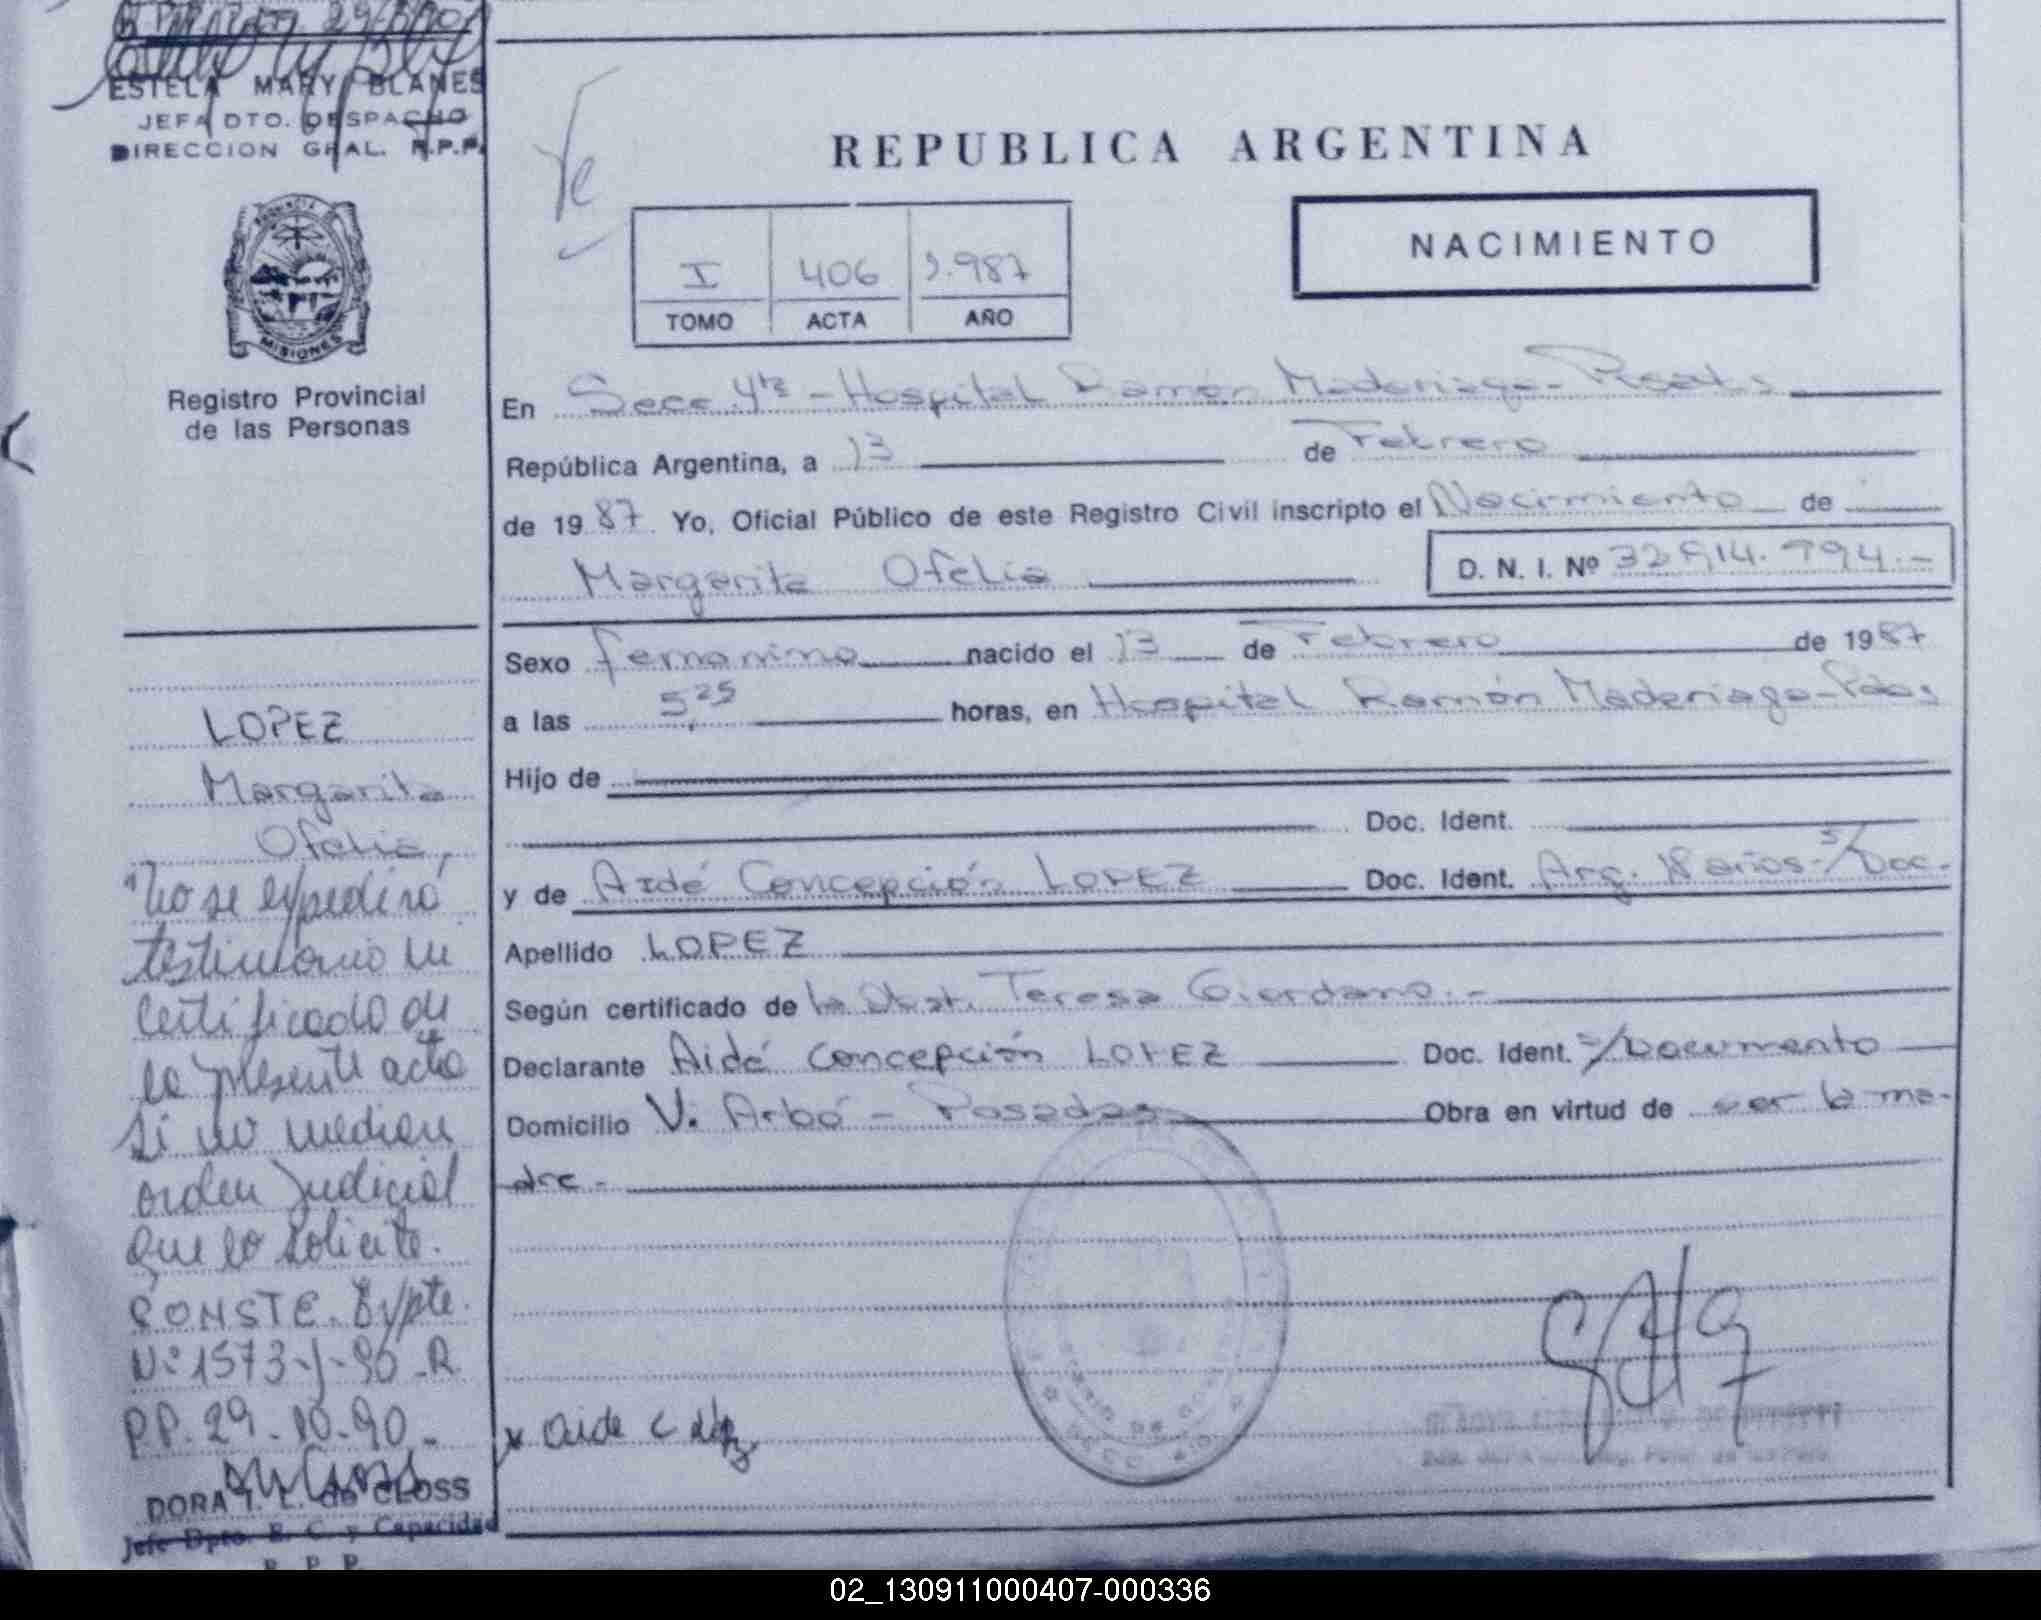 ESTELA MARY BLANES
JEFA DTO. DESPACHO
DIRECCION GRAL. R.P.P.
PROVINCIA DE
MISIONES
Registro Provincial
de las Personas
LOPEZ
Margarita
Ofelia,
"No se expedirá
testimonio ni
certificado de
la presente acta
si no media
orden judicial
que lo solicite.
CONSTE. Expte.
Nº 1573-J-90-R
PP. 29-10-90.-
DORA I. L. de CLOSS
Jefe Dpto. E. C. y Capacidad
R. P. P.
REPUBLICA ARGENTINA
NACIMIENTO
I 406 1.987
TOMO ACTA AÑO
En Secc 4ta - Hospital Ramón Maderiaga - Posadas
República Argentina, a 13 de Febrero
de 1987 Yo, Oficial Público de este Registro Civil inscripto el Nacimiento de
Margarita Ofelia D. N. I. Nº 32.914.794.-
Sexo femenino nacido el 13 de Febrero de 1987
a las 5,25 horas, en Hospital Ramón Maderiaga - Pdas
Hijo de
Doc. Ident.
y de Aidé Concepción LOPEZ Doc. Ident. Arg. 18 años - s/Doc.-
Apellido LOPEZ
Según certificado de la Obst. Teresa Giordano.-
Declarante Aidé Concepción LOPEZ Doc. Ident. s/Documento
Domicilio V. Arbó - Posadas Obra en virtud de ser la ma-
dre -
x Aide C López
02_130911000407-000336